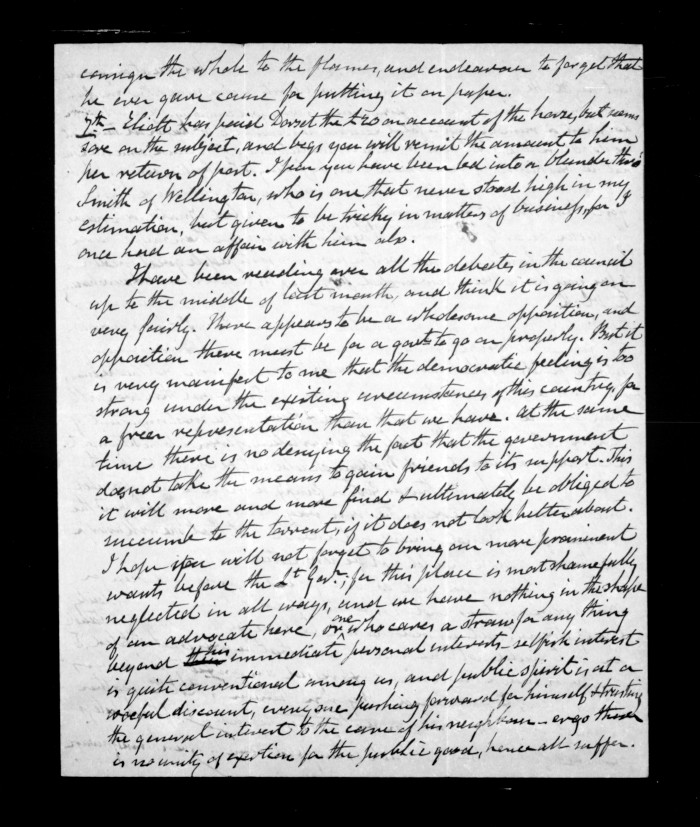 consign the whole to the flames, and endeavour to forget that
he ever gave cause for putting it on paper.
7th – Eliott has paid Dorset the £20 on account of the horse, but seems
sore on the subject, and begs you will remit the amount to him
per return of post. I fear you have been led into a blunder thro'
Smith of Wellington, who is one that never stood high in my
estimation, but given to be tricky in matters of business, for I
once had an affair with him also.
I have been reading over all the debates in the council
up to the middle of last month, and think it is going on
very fairly. There appears to be a wholesome opposition, and
opposition there must be for a govt to go on properly. But it
is very manifest to me that the democratic feeling is too
strong under the existing circumstances of this country, for
a freer representation than that we have. At the same
time there is no denying the fact that the government
does not take the means to gain friends to its support. This
it will more and more find & ultimately be obliged to
succumb to the torrent, if it does not look better about.
I hope you will not forget to bring our more prominent
wants before the Lt Govr; for this place is most shamefully
neglected in all ways, and we have nothing in the shape
of an advocate here, or one who cares a straw for any thing
beyond his immediate personal interests – selfish interest
is quite conventional among us, and public spirit is at a
woeful discount, every one pushing forward for himself & trusting
the general interest to the care of his neighbour – ergo there
is no unity of exertion for the public good, hence all suffer.